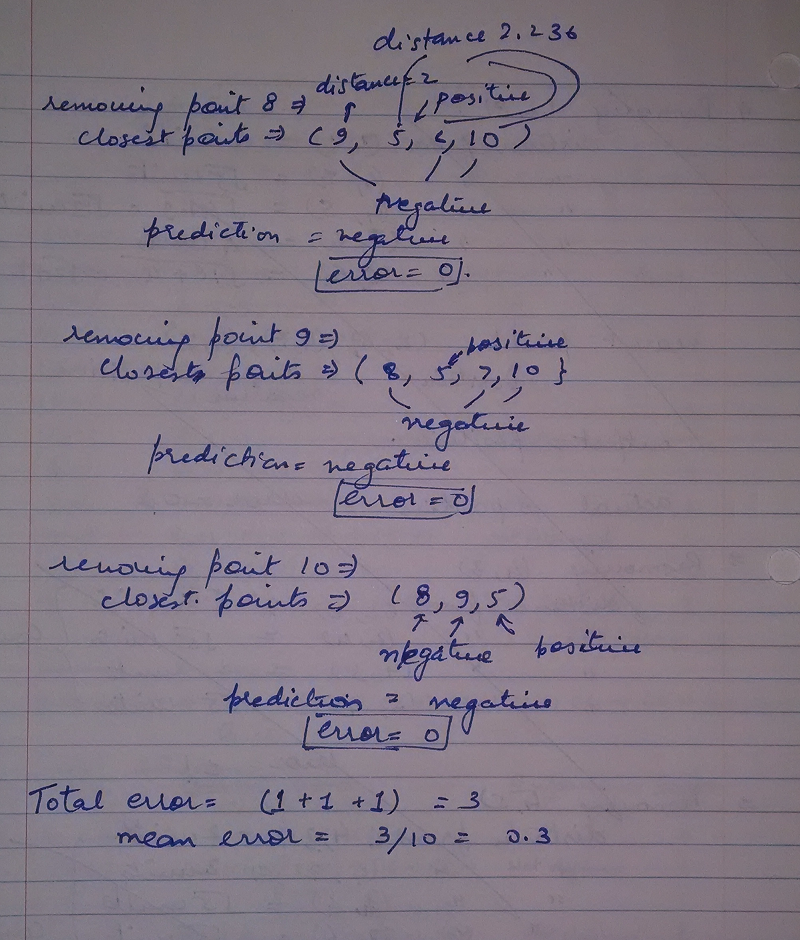 distance 2.236
distance=2
positive
removing point 8 ⇒
closest points ⇒ (9, 5, 6, 10)
negative
prediction = negative
error = 0.
removing point 9 ⇒
positive
closest points ⇒ ( 8, 5, 7, 10 }
negative
prediction = negative
error = 0
removing point 10 ⇒
closest. points ⇒ ( 8, 9, 5 )
negative positive
prediction = negative
error = 0
Total error = (1 + 1 + 1) = 3
mean error = 3/10 = 0.3